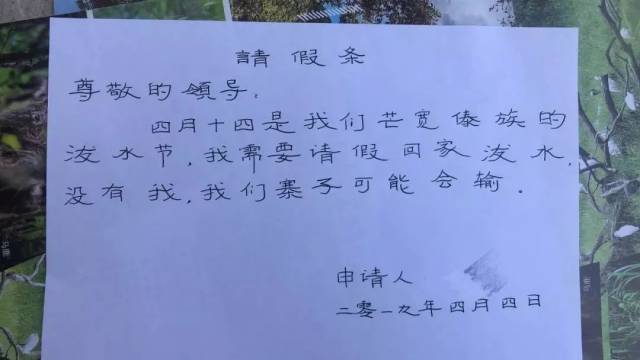 請假条
尊敬的領导：
四月十四是我们芒宽傣族的
泼水节，我需要请假回家泼水，
没有我，我们寨子可能会输。
申请人
二零一九年四月四日